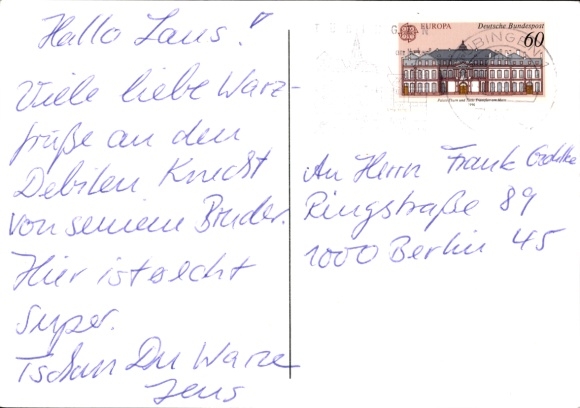 Hallo Laus!
Viele liebe Warz-
grüße an den
Debilen Knecht
von seinem Bruder.
Hier ist echt
super.
Tschau Du Warze
Jens
EUROPA Deutsche Bundespost
60
Palais Thurn und Taxis Frankfurt am Main
An Herrn Frank
Ringstraße 89
1000 Berlin 45